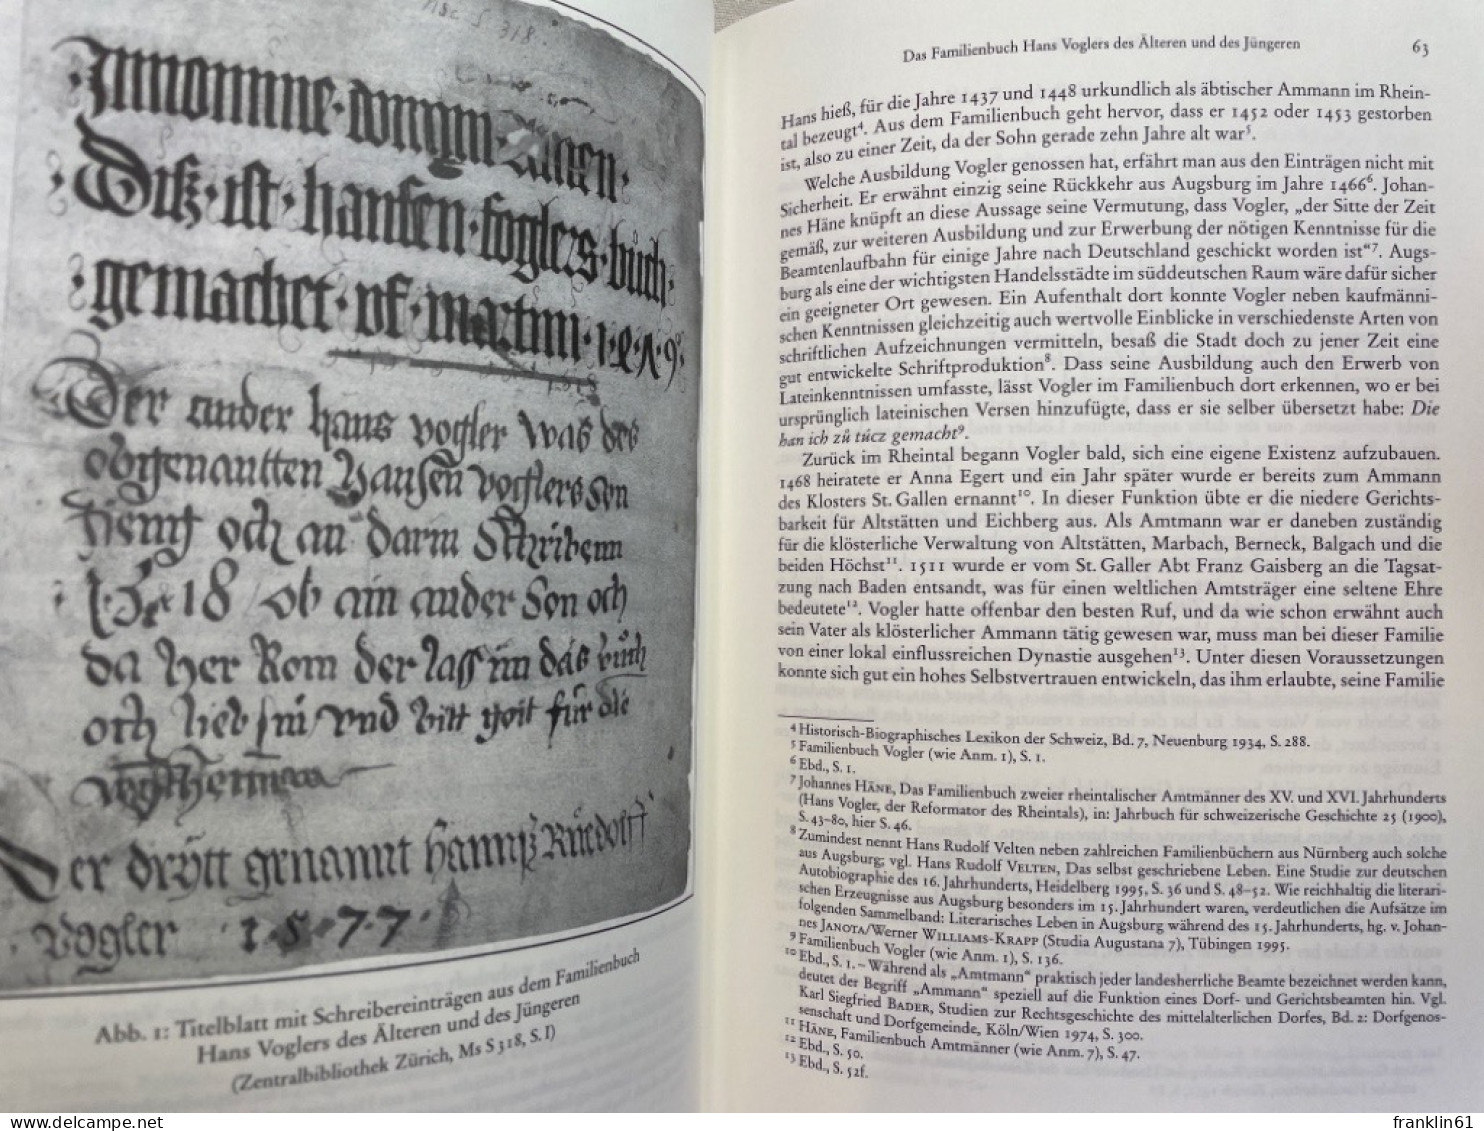 Msc S 318.
Jnnomine · domini · Amen ·
Diß · ist · hansen · foglers · bůch ·
· gemachet · vf · martini · 1 · 4 · 7 · 9 ·
1518
Der ander hans vogler was des
obgenantten Hansen voglers son
och an darin Schribenn
· 1518 / ob ain ander Son och
da her kom der lass im das bůch
och lieb sin / vnd bitt gott für die
Der drytt genannt Hannß Rüedolff
· Vogler · 1 · 5 · 7 · 7 ·
Abb. 1: Titelblatt mit Schreibereinträgen aus dem Familienbuch
Hans Voglers des Älteren und des Jüngeren
(Zentralbibliothek Zürich, Ms S 318, S. I)
Das Familienbuch Hans Voglers des Älteren und des Jüngeren 63
Hans hieß, für die Jahre 1437 und 1448 urkundlich als äbtischer Ammann im Rhein-
tal bezeugt⁴. Aus dem Familienbuch geht hervor, dass er 1452 oder 1453 gestorben
ist, also zu einer Zeit, da der Sohn gerade zehn Jahre alt war⁵.
Welche Ausbildung Vogler genossen hat, erfährt man aus den Einträgen nicht mit
Sicherheit. Er erwähnt einzig seine Rückkehr aus Augsburg im Jahre 1466⁶. Johan-
nes Häne knüpft an diese Aussage seine Vermutung, dass Vogler, „der Sitte der Zeit
gemäß, zur weiteren Ausbildung und zur Erwerbung der nötigen Kenntnisse für die
Beamtenlaufbahn für einige Jahre nach Deutschland geschickt worden ist“⁷. Augs-
burg als eine der wichtigsten Handelsstädte im süddeutschen Raum wäre dafür sicher
ein geeigneter Ort gewesen. Ein Aufenthalt dort konnte Vogler neben kaufmänni-
schen Kenntnissen gleichzeitig auch wertvolle Einblicke in verschiedenste Arten von
schriftlichen Aufzeichnungen vermitteln, besaß die Stadt doch zu jener Zeit eine
gut entwickelte Schriftproduktion⁸. Dass seine Ausbildung auch den Erwerb von
Lateinkenntnissen umfasste, lässt Vogler im Familienbuch dort erkennen, wo er bei
ursprünglich lateinischen Versen hinzufügte, dass er sie selber übersetzt habe: Die
han ich zů túcz gemacht⁹.
Zurück im Rheintal begann Vogler bald, sich eine eigene Existenz aufzubauen.
1468 heiratete er Anna Egert und ein Jahr später wurde er bereits zum Ammann
des Klosters St. Gallen ernannt¹⁰. In dieser Funktion übte er die niedere Gerichts-
barkeit für Altstätten und Eichberg aus. Als Amtmann war er daneben zuständig
für die klösterliche Verwaltung von Altstätten, Marbach, Berneck, Balgach und die
beiden Höchst¹¹. 1511 wurde er vom St. Galler Abt Franz Gaisberg an die Tagsat-
zung nach Baden entsandt, was für einen weltlichen Amtsträger eine seltene Ehre
bedeutete¹². Vogler hatte offenbar den besten Ruf, und da wie schon erwähnt auch
sein Vater als klösterlicher Ammann tätig gewesen war, muss man bei dieser Familie
von einer lokal einflussreichen Dynastie ausgehen¹³. Unter diesen Voraussetzungen
konnte sich gut ein hohes Selbstvertrauen entwickeln, das ihm erlaubte, seine Familie
⁴ Historisch-Biographisches Lexikon der Schweiz, Bd. 7, Neuenburg 1934, S. 288.
⁵ Familienbuch Vogler (wie Anm. 1), S. 1.
⁶ Ebd., S. 1.
⁷ Johannes HÄNE, Das Familienbuch zweier rheintalischer Amtmänner des XV. und XVI. Jahrhunderts
(Hans Vogler, der Reformator des Rheintals), in: Jahrbuch für schweizerische Geschichte 25 (1900),
S. 43–80, hier S. 46.
⁸ Zumindest nennt Hans Rudolf Velten neben zahlreichen Familienbüchern aus Nürnberg auch solche
aus Augsburg; vgl. Hans Rudolf VELTEN, Das selbst geschriebene Leben. Eine Studie zur deutschen
Autobiographie des 16. Jahrhunderts, Heidelberg 1995, S. 36 und S. 48–52. Wie reichhaltig die literari-
schen Erzeugnisse aus Augsburg besonders im 15. Jahrhundert waren, verdeutlichen die Aufsätze im
folgenden Sammelband: Literarisches Leben in Augsburg während des 15. Jahrhunderts, hg. v. Johan-
nes JANOTA/Werner WILLIAMS-KRAPP (Studia Augustana 7), Tübingen 1995.
⁹ Familienbuch Vogler (wie Anm. 1), S. 136.
¹⁰ Ebd., S. 1. – Während als „Amtmann“ praktisch jeder landesherrliche Beamte bezeichnet werden kann,
deutet der Begriff „Ammann“ speziell auf die Funktion eines Dorf- und Gerichtsbeamten hin. Vgl.
Karl Siegfried BADER, Studien zur Rechtsgeschichte des mittelalterlichen Dorfes, Bd. 2: Dorfgenos-
senschaft und Dorfgemeinde, Köln/Wien 1974, S. 300.
¹¹ HÄNE, Familienbuch Amtmänner (wie Anm. 7), S. 47.
¹² Ebd., S. 50.
¹³ Ebd., S. 52f.
www.delcampe.net
franklin61